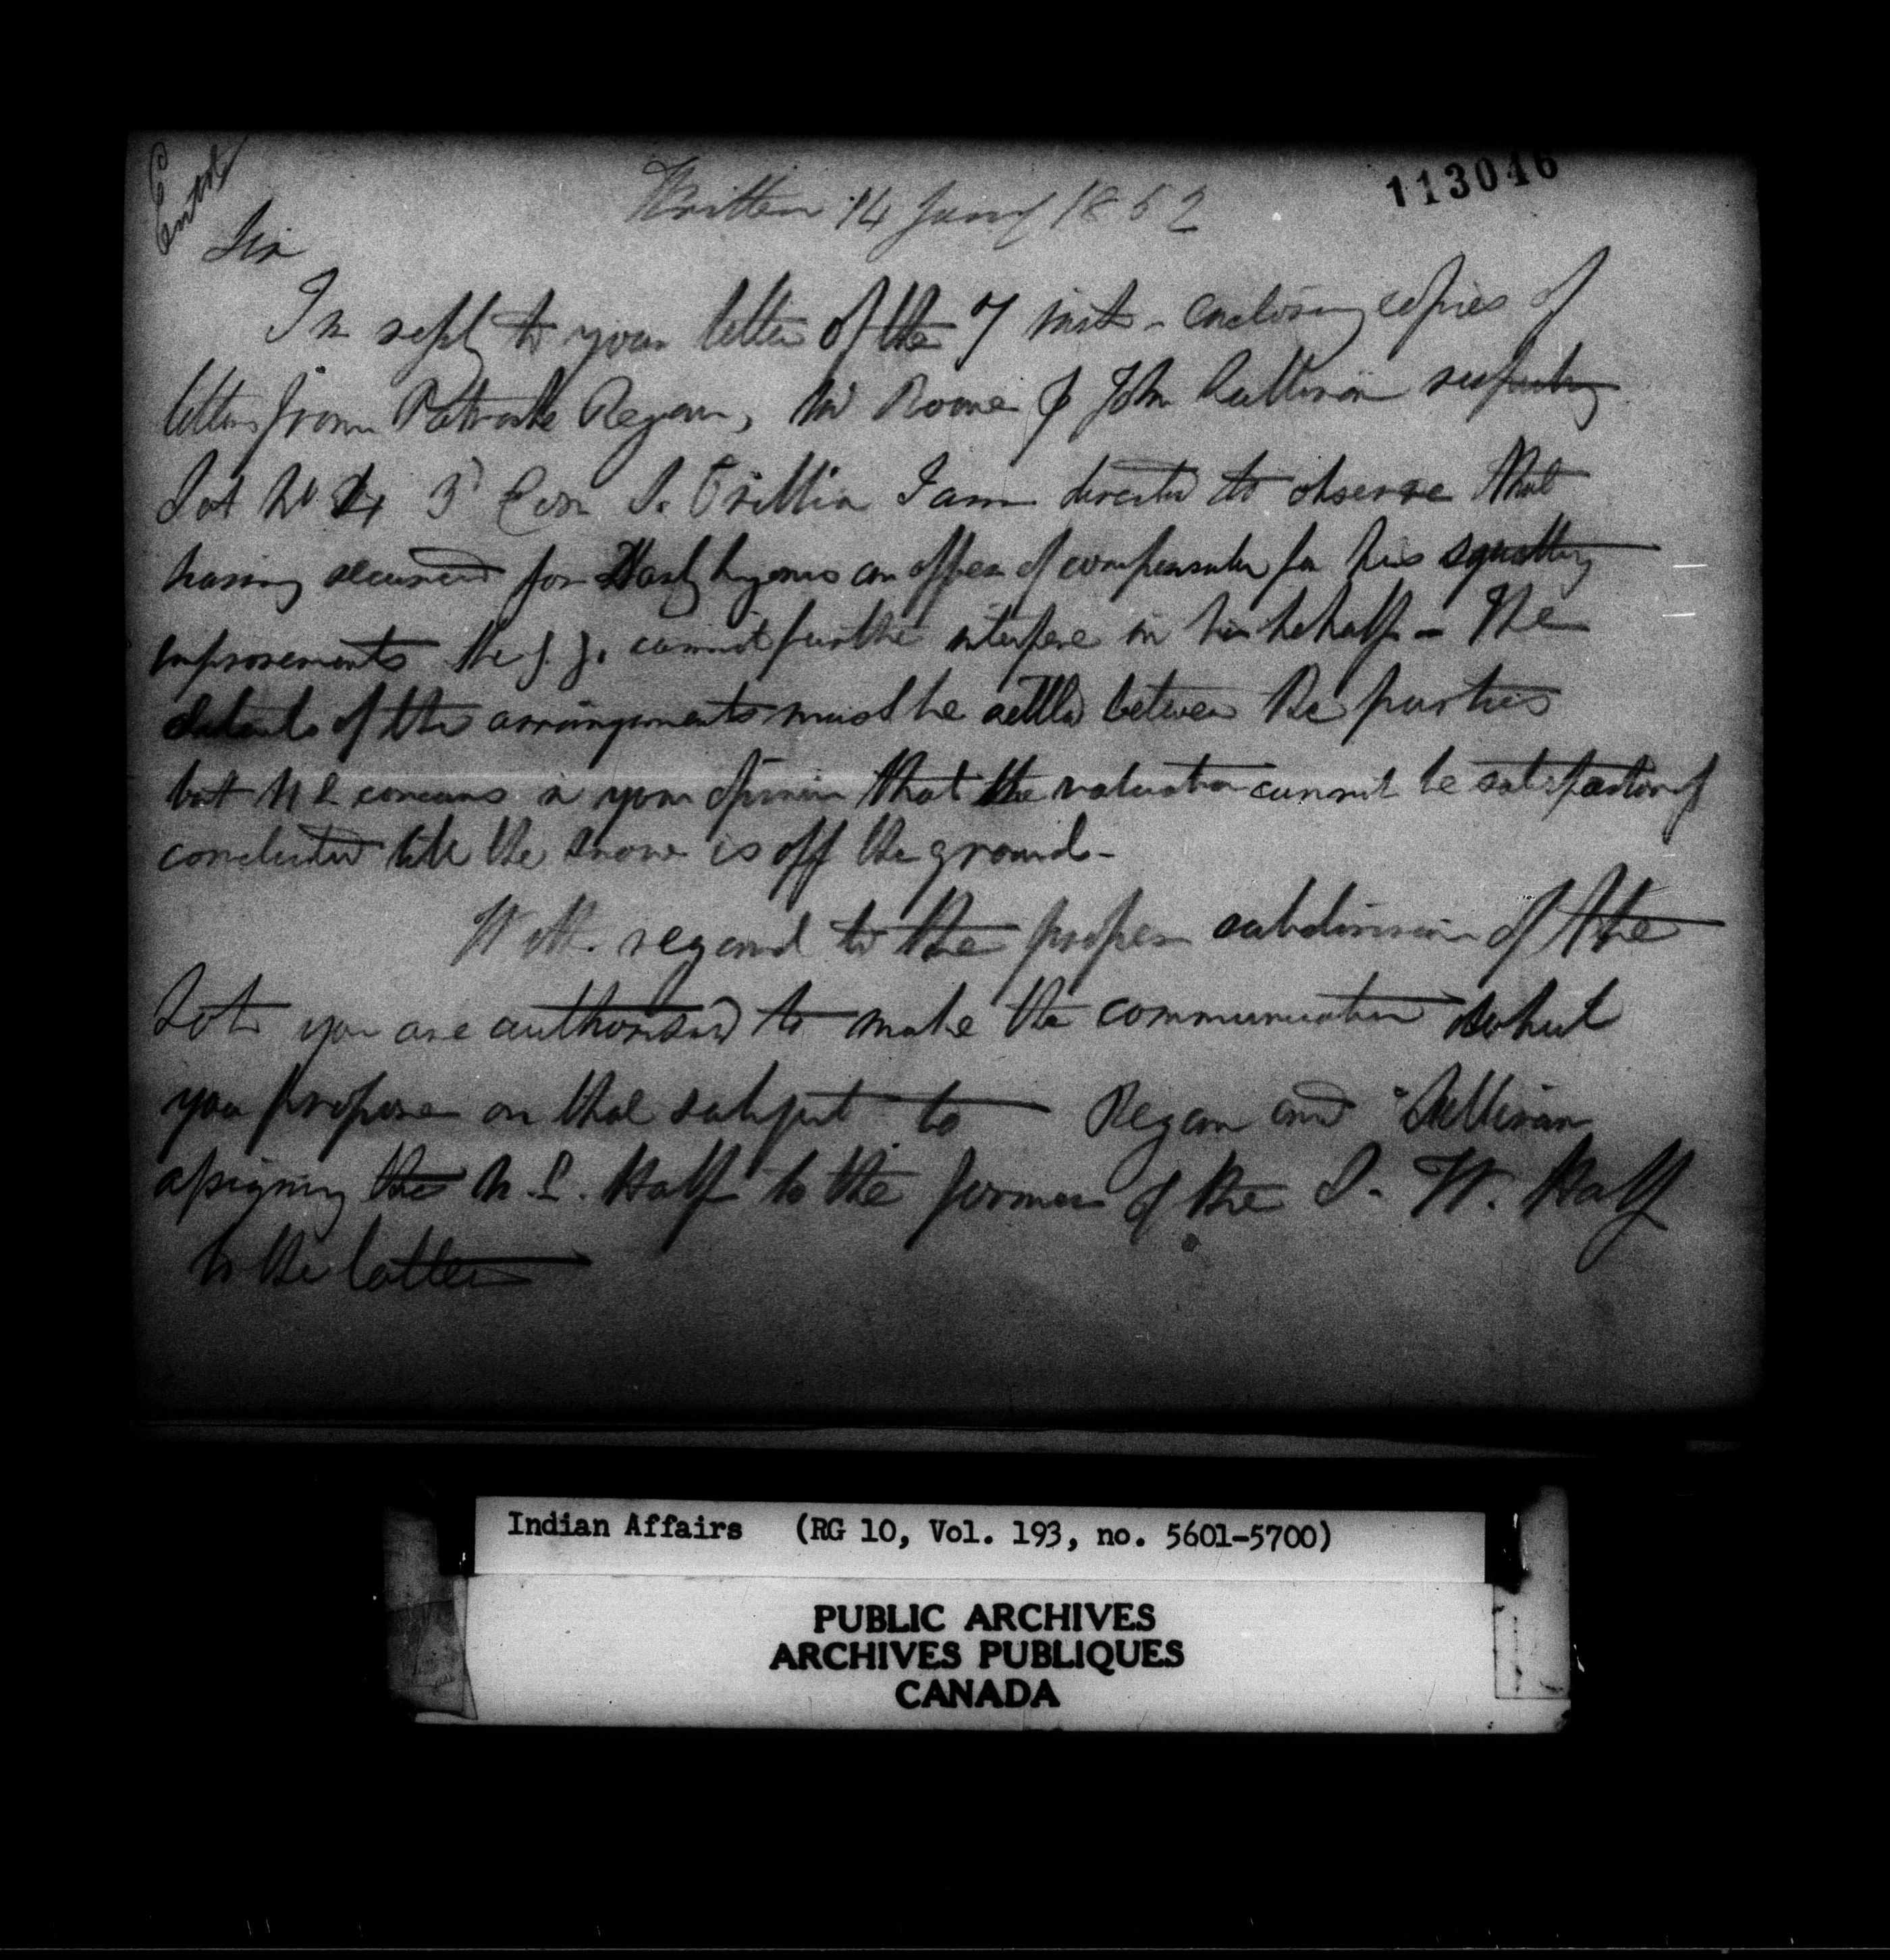 Entd
113046
Written 14 Jany 1852
Sir
In reply to your letter of the 7 inst - enclosing copies of
letters from Patrick Regan, Mr Roome & John Sullivan respecting
Lot No 24 3d Con S. Orillia I am directed to observe that
having secured for an offer of compensation for his squatting
improvements the G. G. cannot further interfere in his behalf - The
details of the arrangements must be settled between the parties
but H E concurs in your opinion that the valuation cannot be satisfactorily
conducted till the snow is off the ground -
With regard to the proper subdivision of the
Lot you are authorised to make the communication which
you propose on that subject to Regan and Sullivan
assigning the N. E. Half to the former & the S. W. Half
to the latter
Indian Affairs (RG 10, Vol. 193, no. 5601-5700)
PUBLIC ARCHIVES
ARCHIVES PUBLIQUES
CANADA